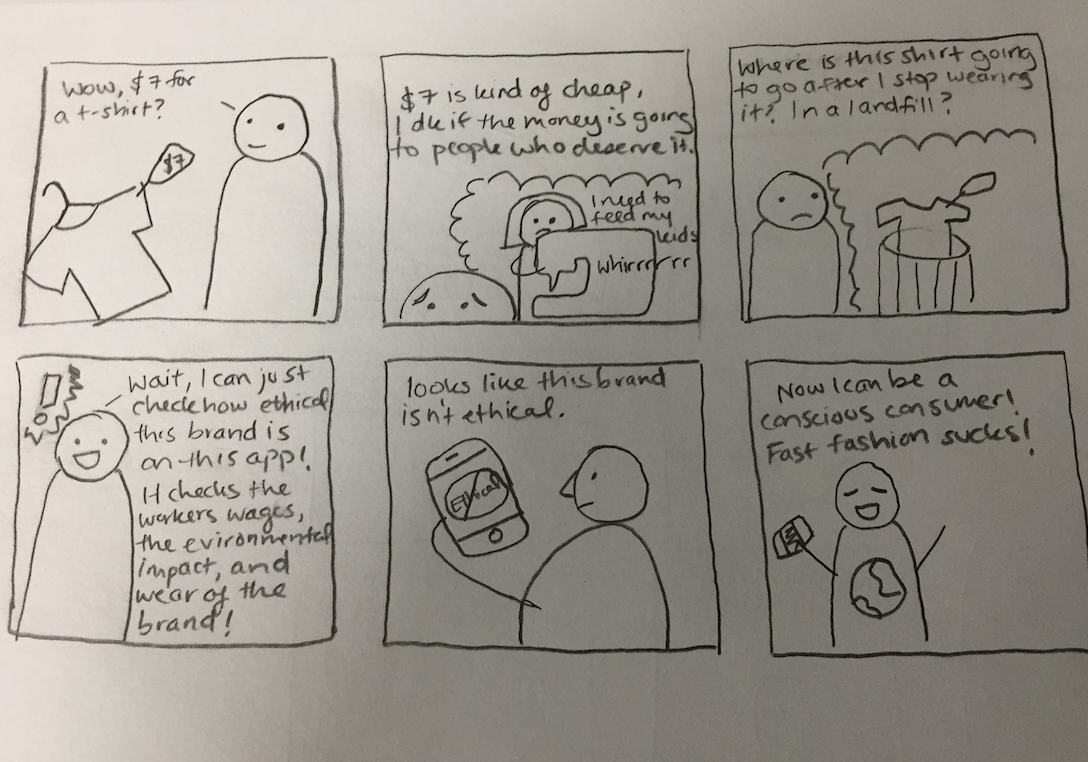 Wow, $7 for
a t-shirt?
$7
$7 is kind of cheap,
I dk if the money is going
to people who deserve it.
I need to
feed my
kids
whirrrrrrr
Where is this shirt going
to go after I stop wearing
it? In a landfill?
Wait, I can just
check how ethical
this brand is
on this app!
It checks the
workers wages,
the evironmental
impact, and
wear of the
brand!
looks like this brand
isn't ethical.
Ethical
Now I can be a
conscious consumer!
Fast fashion sucks!